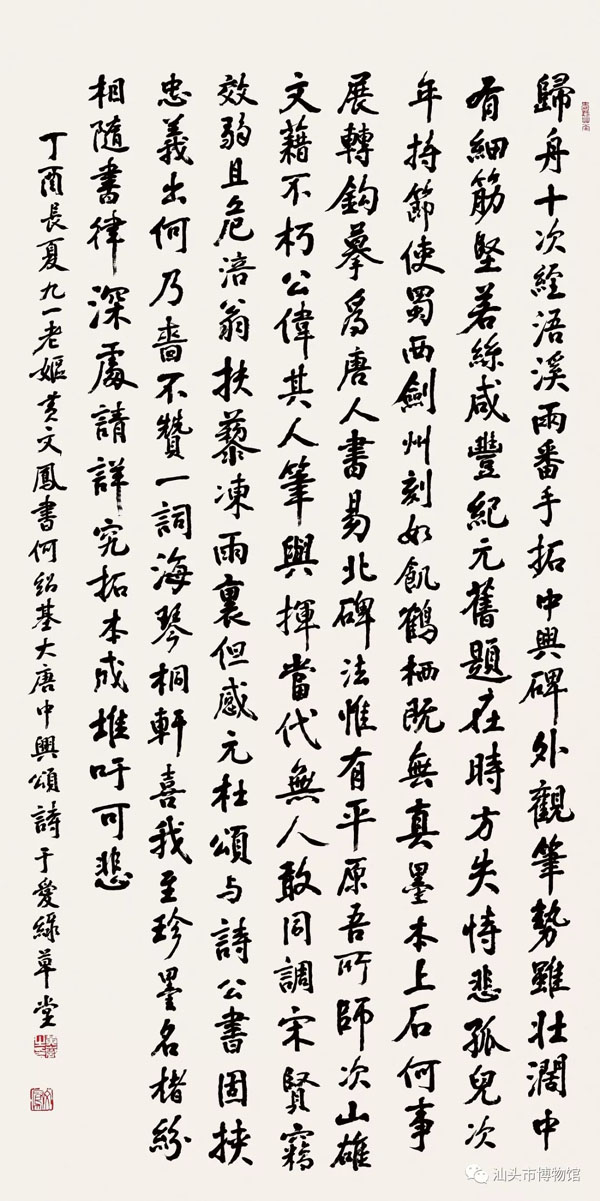 歸舟十次經浯溪兩番手拓中興碑外觀筆勢雖壯濶中
有細筋堅若絲咸豐紀元舊題在時方失恃悲孤兒次
年持節使蜀西劍州刻如飢鶴栖既無真墨本上石何事
展轉鈎摹爲唐人書易北碑法惟有平原吾所師次山雄
文藉不朽公偉其人筆與揮當代無人敢同調宋賢竊
效弱且危涪翁扶藜凍雨裏但感元杜頌与詩公書固挾
忠義出何乃嗇不贊一詞海琴桐軒喜我至珍墨名楮紛
相隨書律深處請詳究拓本成堆吁可悲
丁酉長夏九一老嫗黄文鳳書何紹基大唐中興頌詩于愛綠草堂
汕头市博物馆